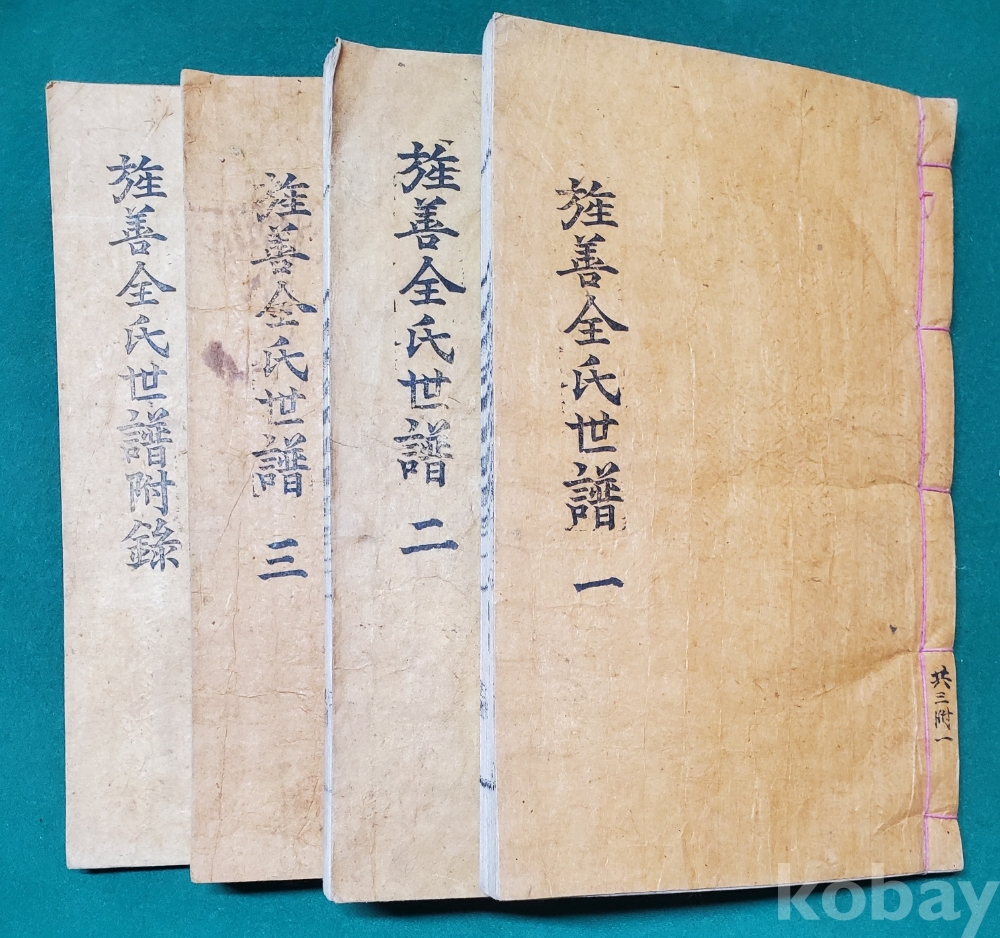 旌善全氏世譜 一
共三附一
旌善全氏世譜 二
旌善全氏世譜 三
旌善全氏世譜附錄
kobay